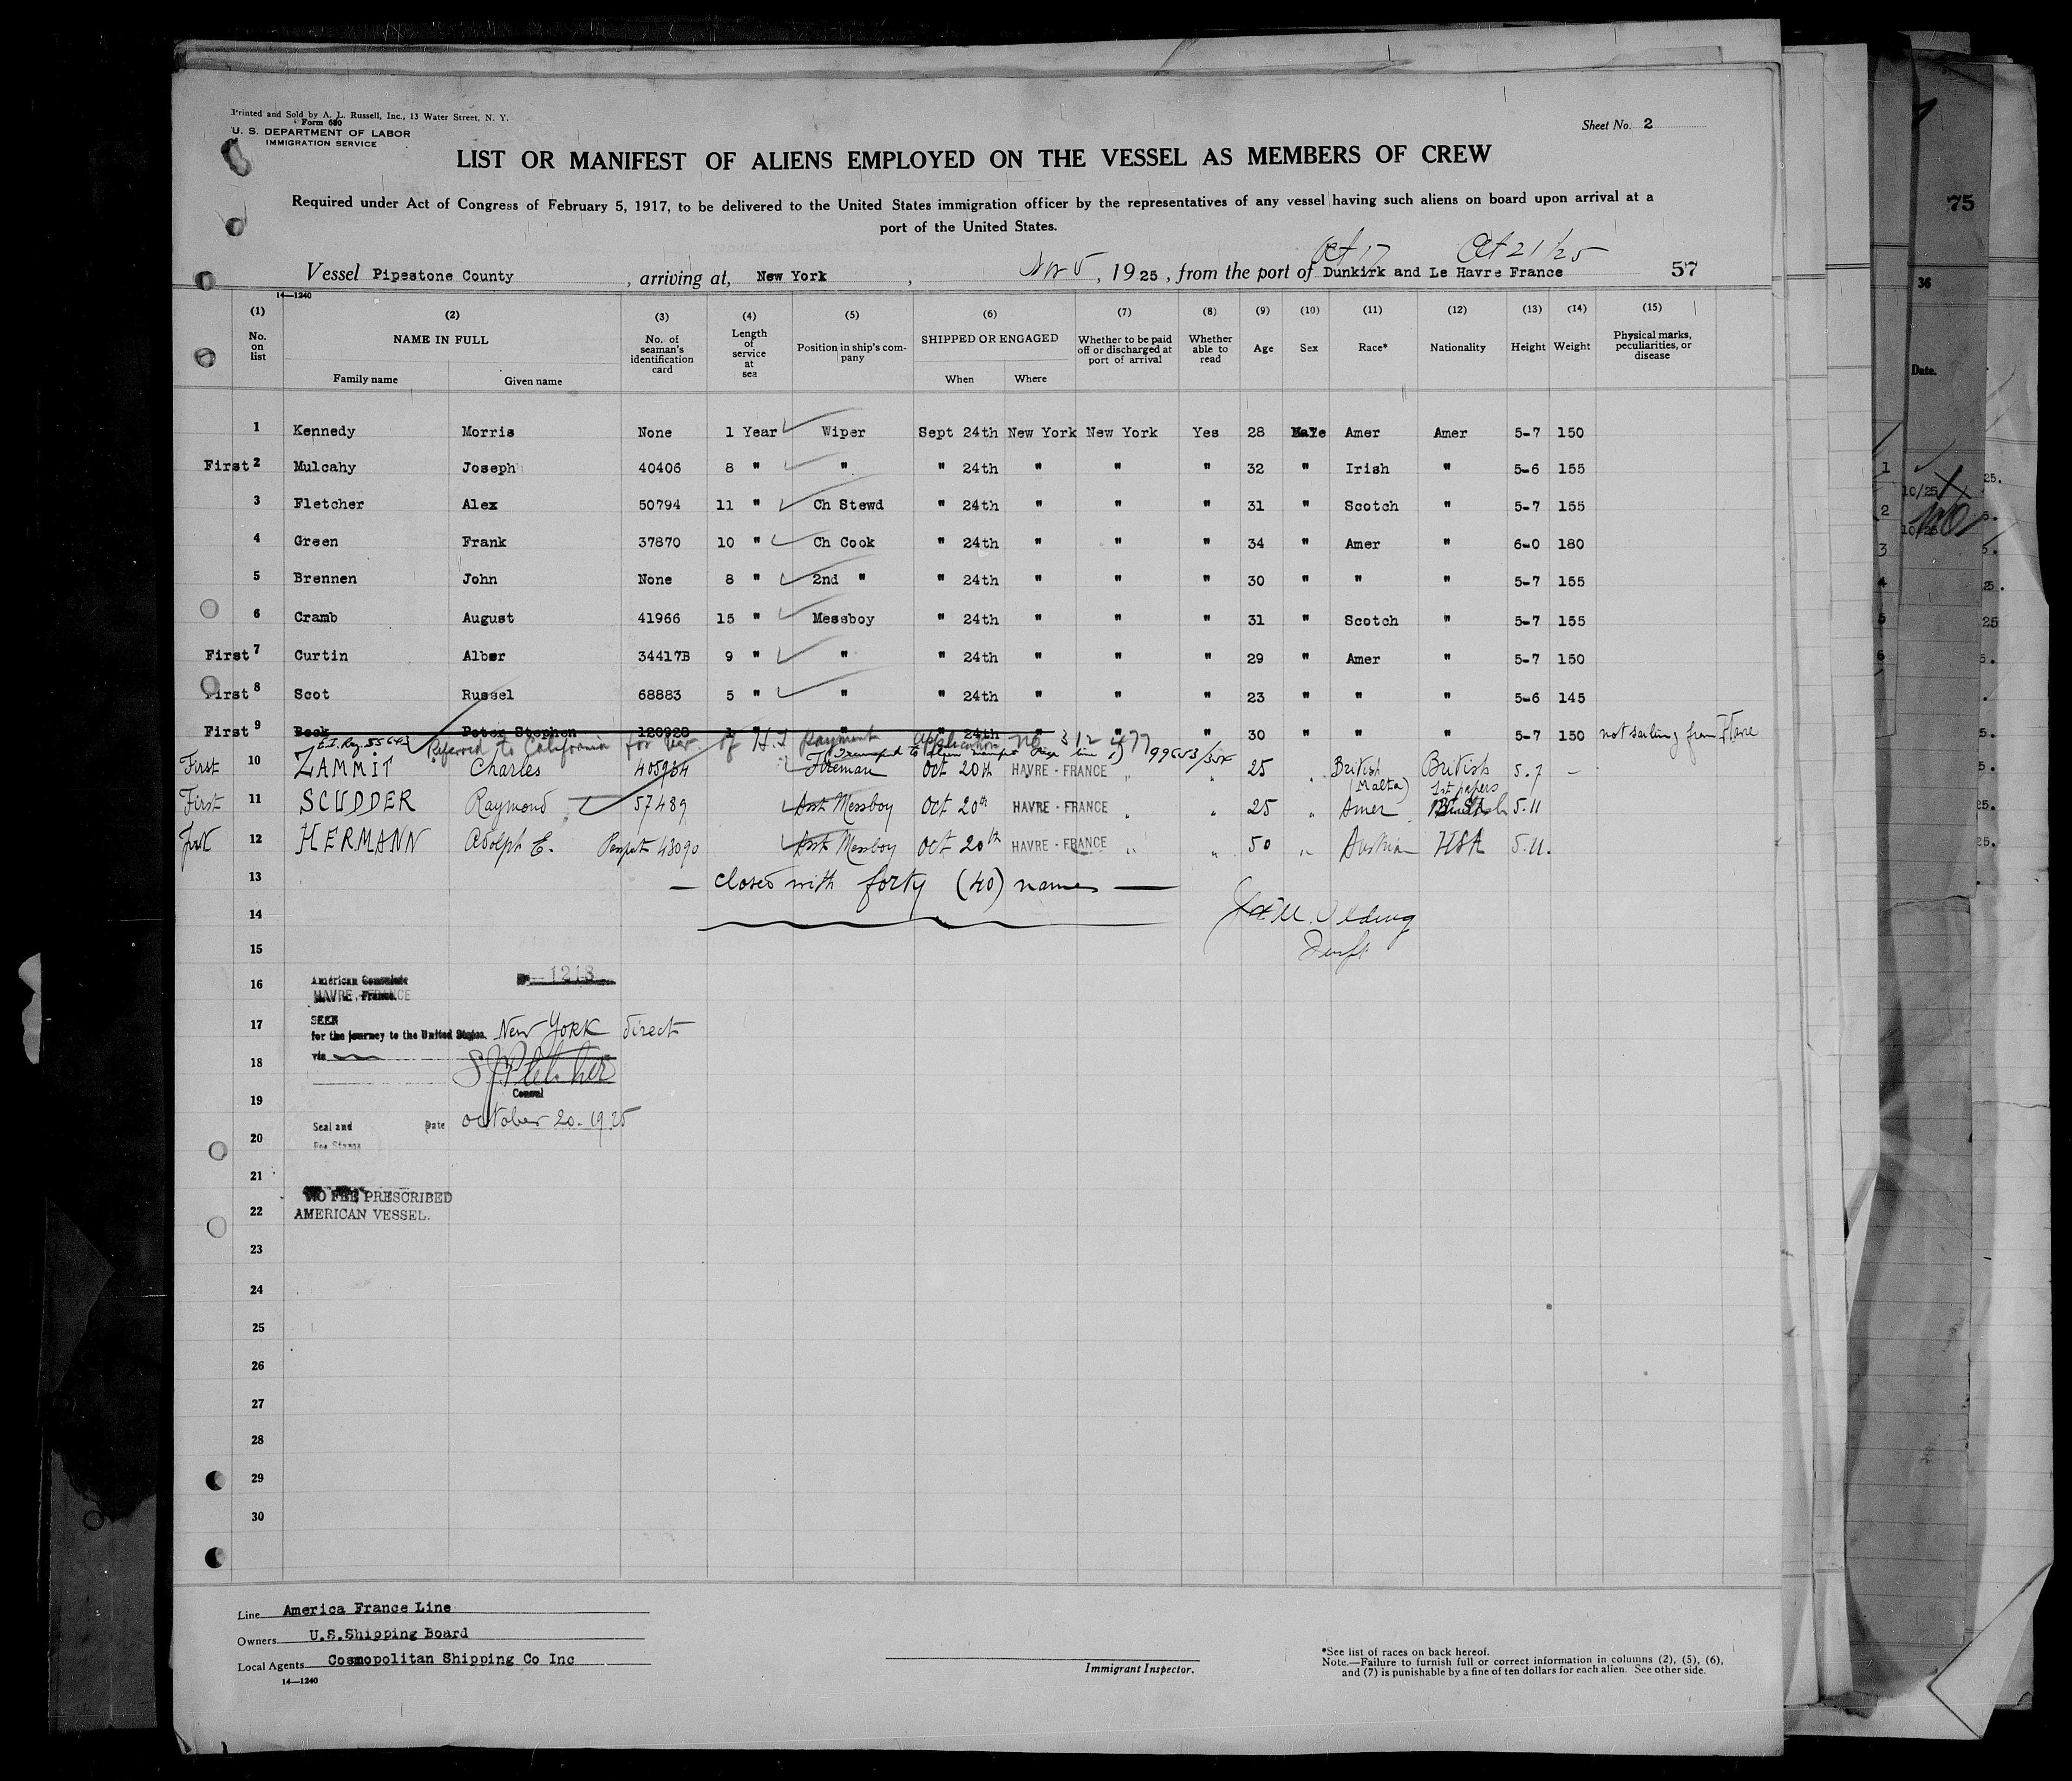 Printed and Sold by A. L. Russell, Inc., 13 Water Street, N. Y.
Form 680
U. S. DEPARTMENT OF LABOR
IMMIGRATION SERVICE
Sheet No. 2
LIST OR MANIFEST OF ALIENS EMPLOYED ON THE VESSEL AS MEMBERS OF CREW
Required under Act of Congress of February 5, 1917, to be delivered to the United States immigration officer by the representatives of any vessel having such aliens on board upon arrival at a
port of the United States.
Oct 17 Oct 21/25
Vessel Pipestone County, arriving at, New York, Nov 5, 1925, from the port of Dunkirk and Le Havre France 57
14—1240
(1) (2) (3) (4) (5) (6) (7) (8) (9) (10) (11) (12) (13) (14) (15)
No. on list NAME IN FULL Family name Given name No. of seaman's identification card Length of service at sea Position in ship's company SHIPPED OR ENGAGED When Where Whether to be paid off or discharged at port of arrival Whether able to read Age Sex Race* Nationality Height Weight Physical marks, peculiarities, or disease
1 Kennedy Morris None 1 Year Wiper Sept 24th New York New York Yes 28 Male Amer Amer 5-7 150
First 2 Mulcahy Joseph 40406 8 " " " 24th " " " 32 " Irish " 5-6 155
3 Fletcher Alex 50794 11 " Ch Stewd " 24th " " " 31 " Scotch " 5-7 155
4 Green Frank 37870 10 " Ch Cook " 24th " " " 34 " Amer " 6-0 180
5 Brennen John None 8 " 2nd " " 24th " " " 30 " " " 5-7 155
6 Cramb August 41966 15 " Messboy " 24th " " " 31 " Scotch " 5-7 155
First 7 Curtin Alber 34417B 9 " " " 24th " " " 29 " Amer " 5-7 150
First 8 Scot Russel 68883 5 " " " 24th " " " 23 " " " 5-6 145
First 9 Beck Peter Stephen 120928 1 " " " 24th " " " 30 " " " 5-7 150 not sailing from Havre
Referred to California for ver. of H.T payment application no 312477 99653/354
First 10 ZAMMIT Charles 405964 Fireman Oct 20th HAVRE - FRANCE " " 25 " British (Malta) British 1st papers 5.7 —
First 11 SCUDDER Raymond 57489 Asst Messboy Oct 20th HAVRE - FRANCE " " 25 " Amer 5.11
First 12 HERMANN Adolph E. Passpt 48090 Asst Messboy Oct 20th HAVRE - FRANCE " " 50 " Austrian USA 5.11.
13 — closed with forty (40) names —
14
15
16 American Consulate
HAVRE, France. 1218
17 SEEN
for the journey to the United States. New York direct
via
18
Consul
19
Seal and Date October 20. 1925
20 Fee Stamp
21
NO FEE PRESCRIBED
22 AMERICAN VESSEL.
23
24
25
26
27
28
29
30
Line America France Line
Owners U.S.Shipping Board
Local Agents Cosmopolitan Shipping Co Inc
14—1240
Immigrant Inspector.
*See list of races on back hereof.
Note.—Failure to furnish full or correct information in columns (2), (5), (6),
and (7) is punishable by a fine of ten dollars for each alien. See other side.
75
36
Date.
1
2
3
4
5
6